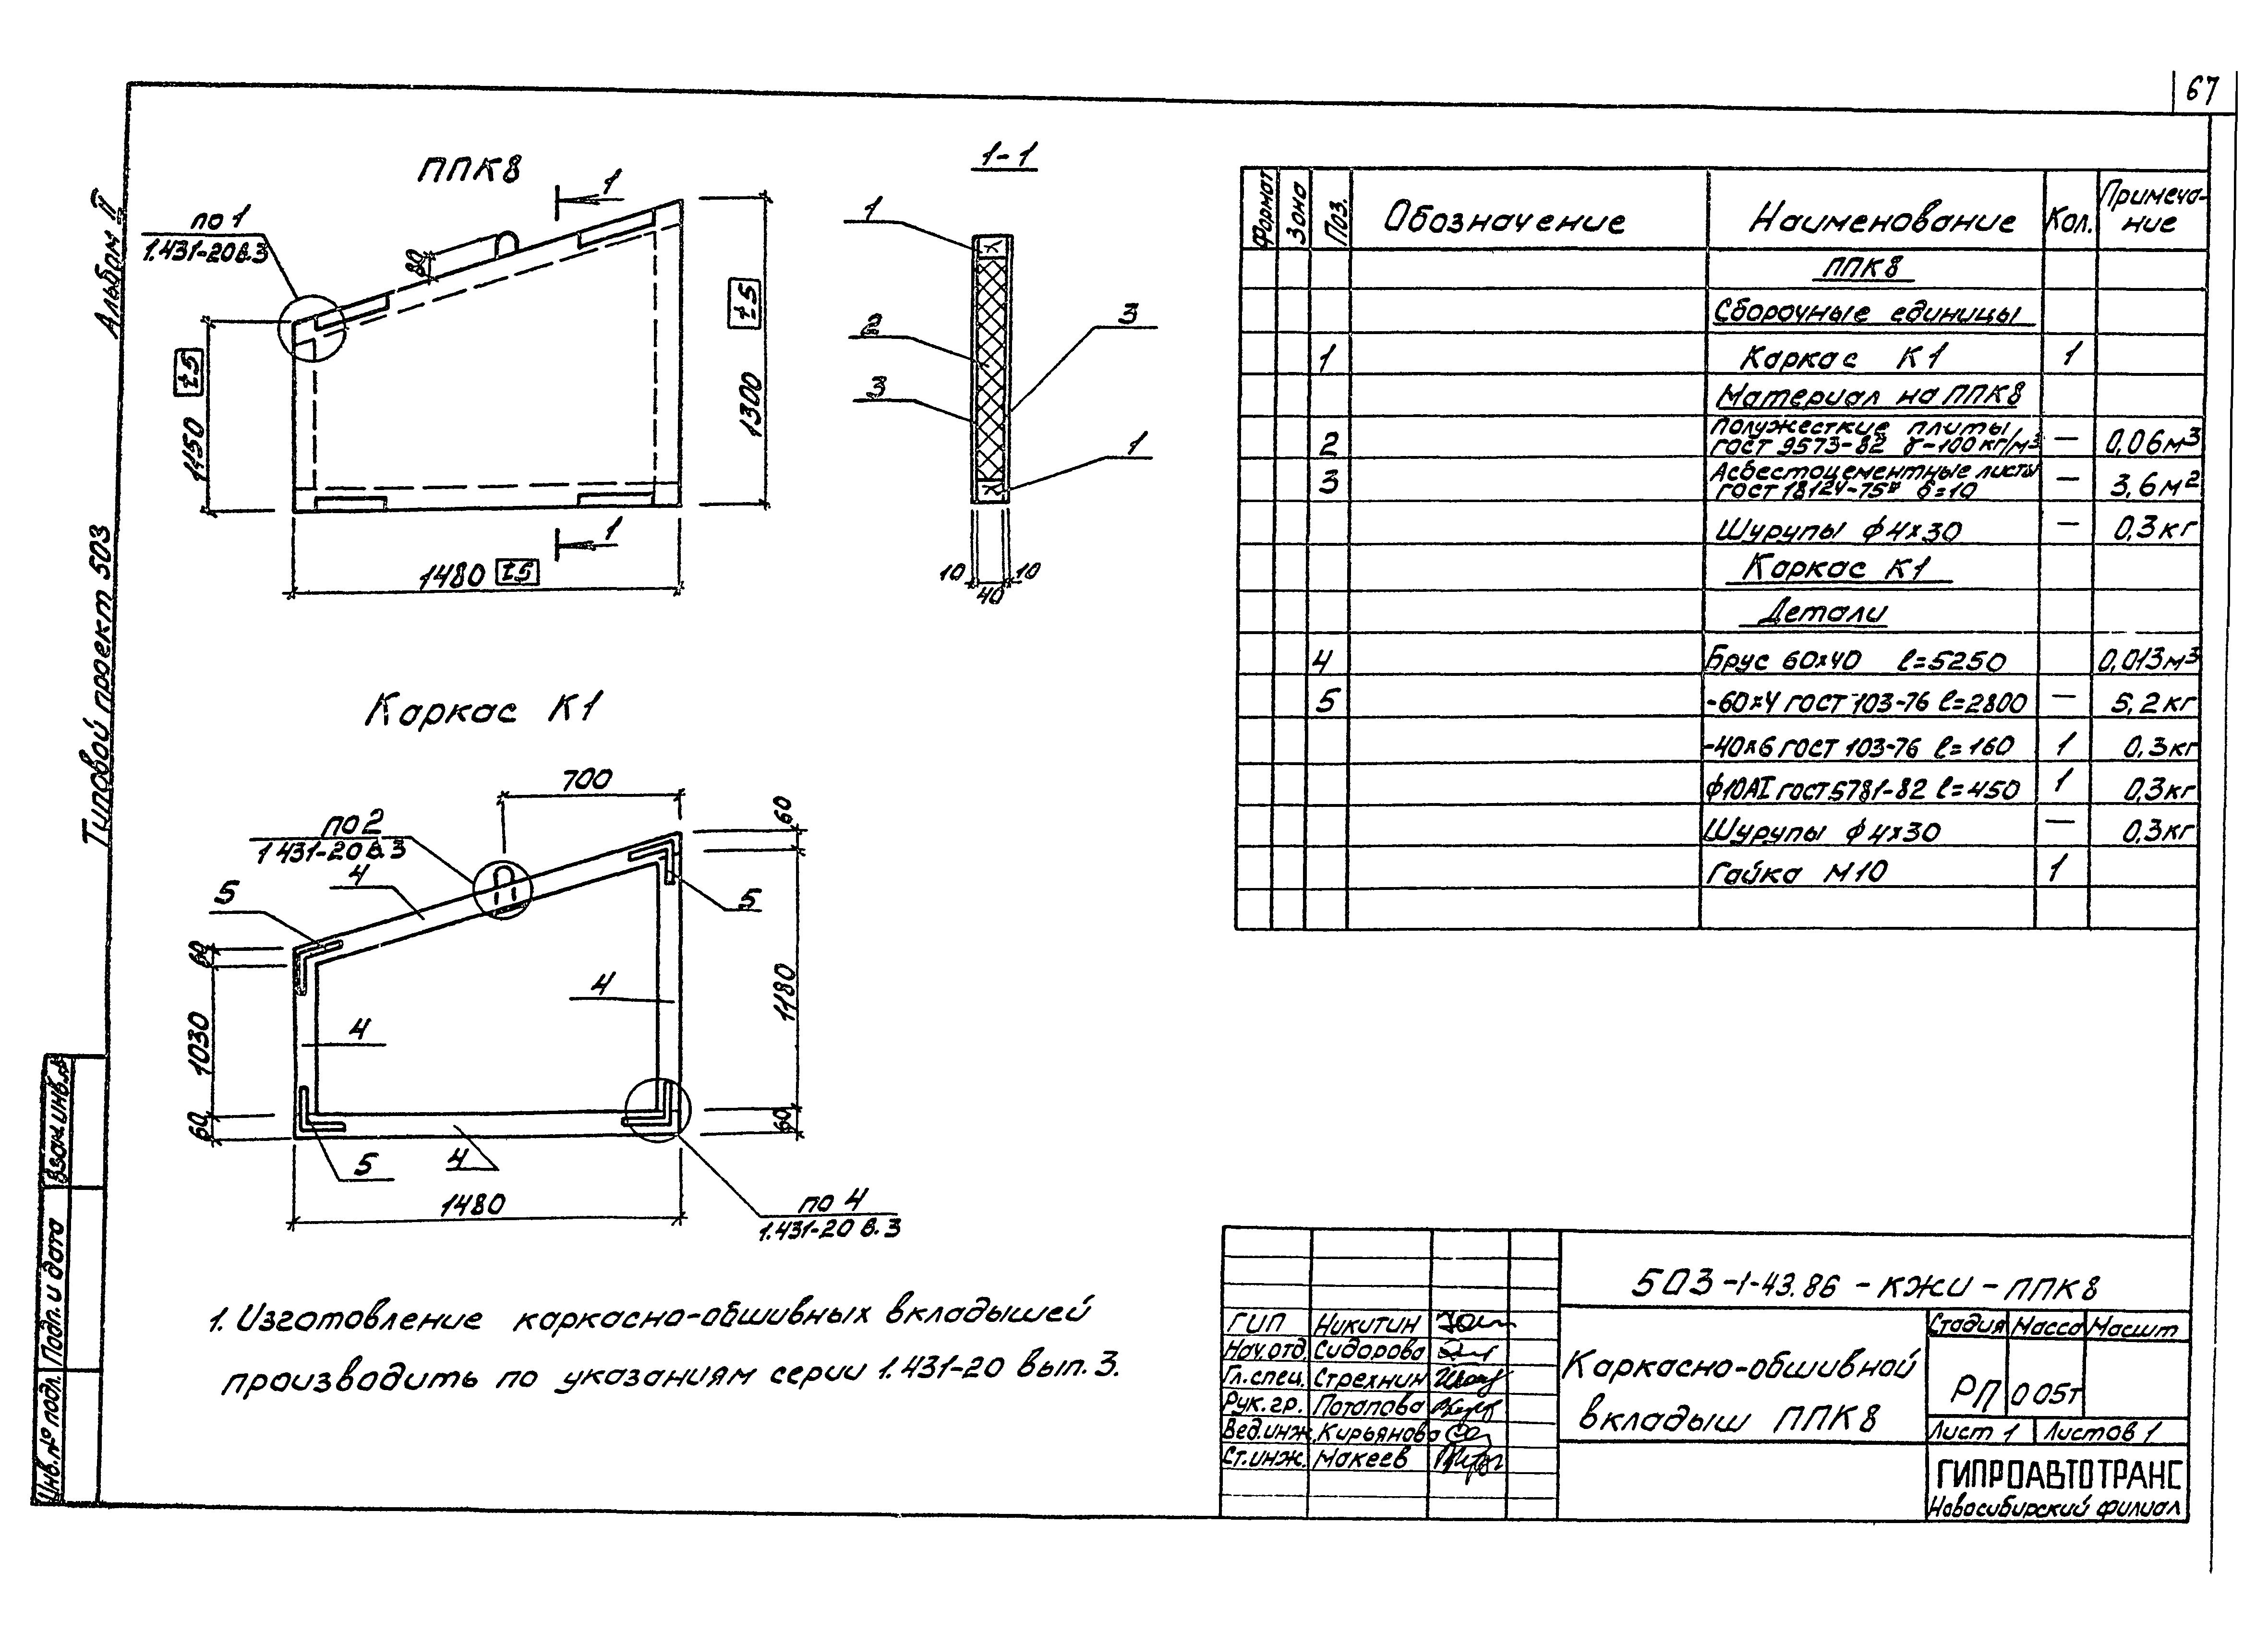 67
Альбом II
Типовой проект 503
ППК8
1
по 1
1.431-20 в.3
80
1450 ±5
1300 ±5
1
1480 ±5
1-1
1
2
3
3
1
10
40
10
Каркас К1
700
60
по 2
1 431-20 в.3
4
5
5
60
1030
60
4
4
1180
60
5
4
1480
по 4
1.431-20 в.3
1. Изготовление каркасно-обшивных вкладышей
производить по указаниям серии 1.431-20 вып. 3.
Формат Зона Поз. Обозначение Наименование Кол. Примеча-
ние
ППК8
Сборочные единицы
1 Каркас К1 1
Материал на ППК8
Полужесткие плиты
2 ГОСТ 9573-82 γ-100кг/м3 — 0,06м3
Асбестоцементные листы
3 ГОСТ 18124-75* δ=10 — 3,6м2
Шурупы ф4х30 — 0,3кг
Каркас К1
Детали
4 Брус 60х40 ℓ=5250 0,013м3
5 -60х4 ГОСТ 103-76 ℓ=2800 — 5,2кг
-40х6 ГОСТ 103-76 ℓ=160 1 0,3кг
ф10АI ГОСТ 5781-82 ℓ=450 1 0,3кг
Шурупы ф4х30 — 0,3кг
Гайка М10 1
503-1-43.86-КЖИ-ППК8
ГИП Никитин
Нач.отд. Сидорова
Гл.спец. Стрехнин
Рук.гр. Потапова
Вед.инж. Кирьянова
Ст.инж. Макеев
Каркасно-обшивной
вкладыш ППК8
Стадия Масса Масшт
РП 0 05т
Лист 1 Листов 1
ГИПРОАВТОТРАНС
Новосибирский филиал
Взам.инв.№
Подп. и дата
Инв.№ подл.